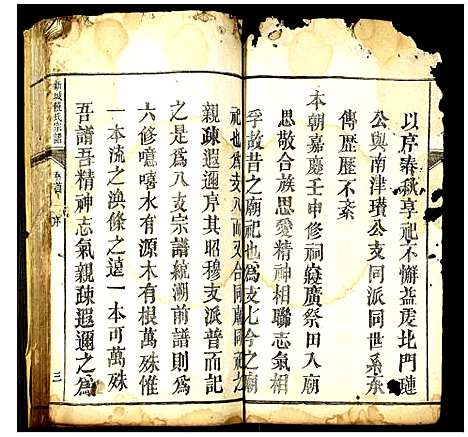 以序春秋享祀不懈葢度北門璉
公與南津瓚公支同派同世系承
傳歷歷不紊
本朝嘉慶壬申修祠寢廣祭田入廟
思敬合族思愛精神相聯志氣相
孚故昔之廟祀也為支七今之廟
祀也為支八而又合同廟同祀之
親疎遐邇序其昭穆支派普而記
之是為八支宗譜統溯前譜則為
六修噫嘻水有源木有根萬殊惟
一本流之渙條之遠一本可萬殊
吾譜吾精神志氣親疎遐邇之為
氏宗譜
卷首
序
三